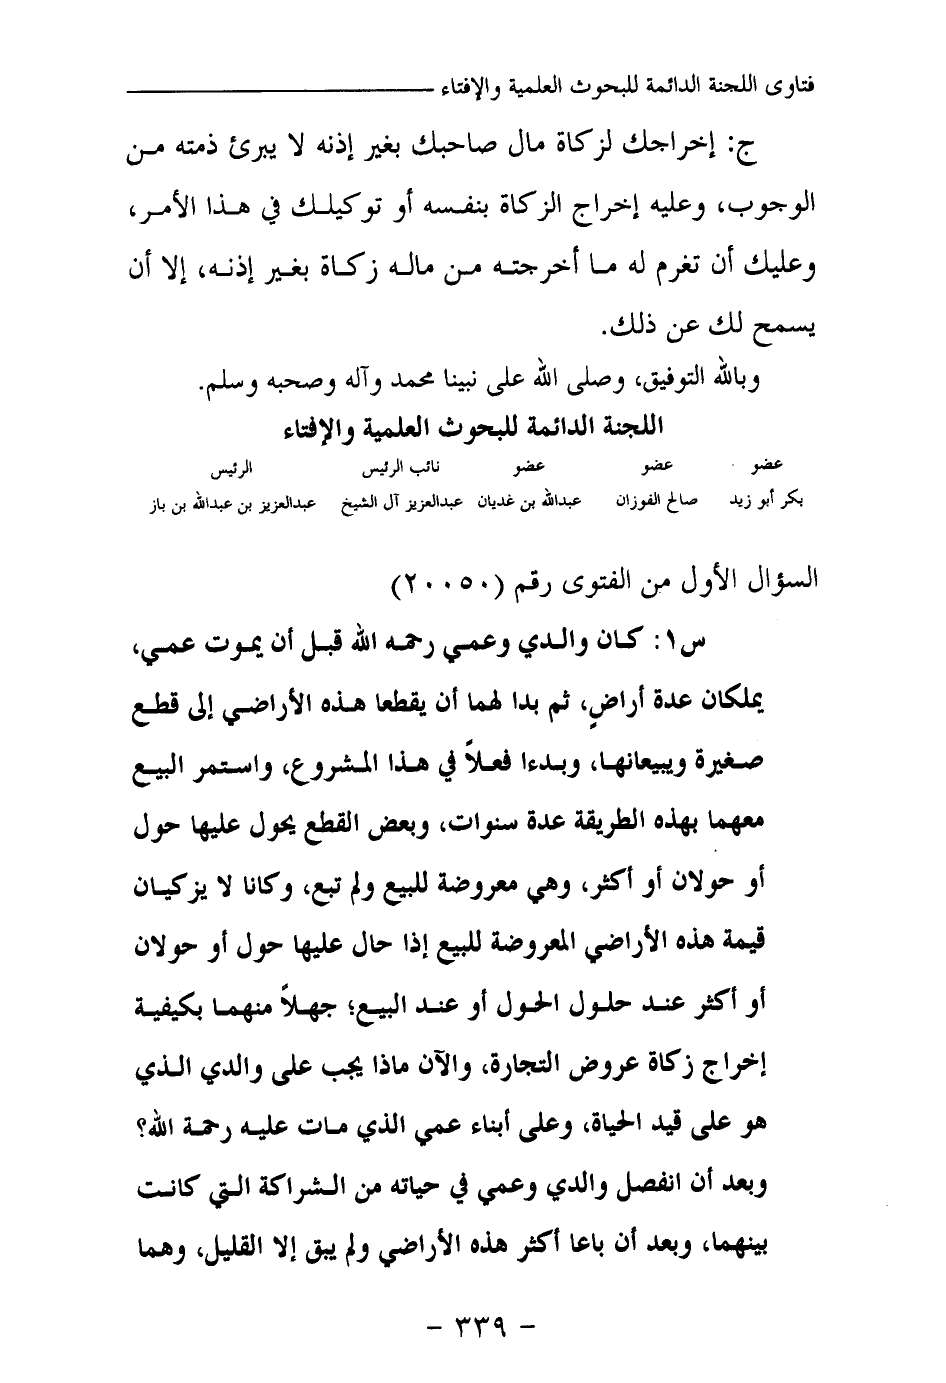 فتاوى اللجنة الدائمة للبحوث العلمية والإفتاء
ج: إخراجك لزكاة مال صاحبك بغير إذنه لا يبرئ ذمته من
الوجوب، وعليه إخراج الزكاة بنفسه أو توكيلك في هذا الأمر،
وعليك أن تغرم له ما أخرجته من ماله زكاة بغير إذنه، إلا أن
يسمح لك عن ذلك.
وبالله التوفيق، وصلى الله على نبينا محمد وآله وصحبه وسلم.
اللجنة الدائمة للبحوث العلمية والإفتاء
عضو عضو عضو نائب الرئيس الرئيس
بكر أبو زيد صالح الفوزان عبدالله بن غديان عبدالعزيز آل الشيخ عبدالعزيز بن عبدالله بن باز
السؤال الأول من الفتوى رقم (٢٠٠٥٠)
س١: كان والدي وعمي رحمه الله قبل أن يموت عمي،
يملكان عدة أراضٍ، ثم بدا لهما أن يقطعا هذه الأراضي إلى قطع
صغيرة ويبيعانها، وبدءا فعلاً في هذا المشروع، واستمر البيع
معهما بهذه الطريقة عدة سنوات، وبعض القطع يحول عليها حول
أو حولان أو أكثر، وهي معروضة للبيع ولم تبع، وكانا لا يزكيان
قيمة هذه الأراضي المعروضة للبيع إذا حال عليها حول أو حولان
أو أكثر عند حلول الحول أو عند البيع؛ جهلاً منهما بكيفية
إخراج زكاة عروض التجارة، والآن ماذا يجب على والدي الذي
هو على قيد الحياة، وعلى أبناء عمي الذي مات عليه رحمة الله؟
وبعد أن انفصل والدي وعمي في حياته من الشراكة التي كانت
بينهما، وبعد أن باعا أكثر هذه الأراضي ولم يبق إلا القليل، وهما
- ٣٣٩ -